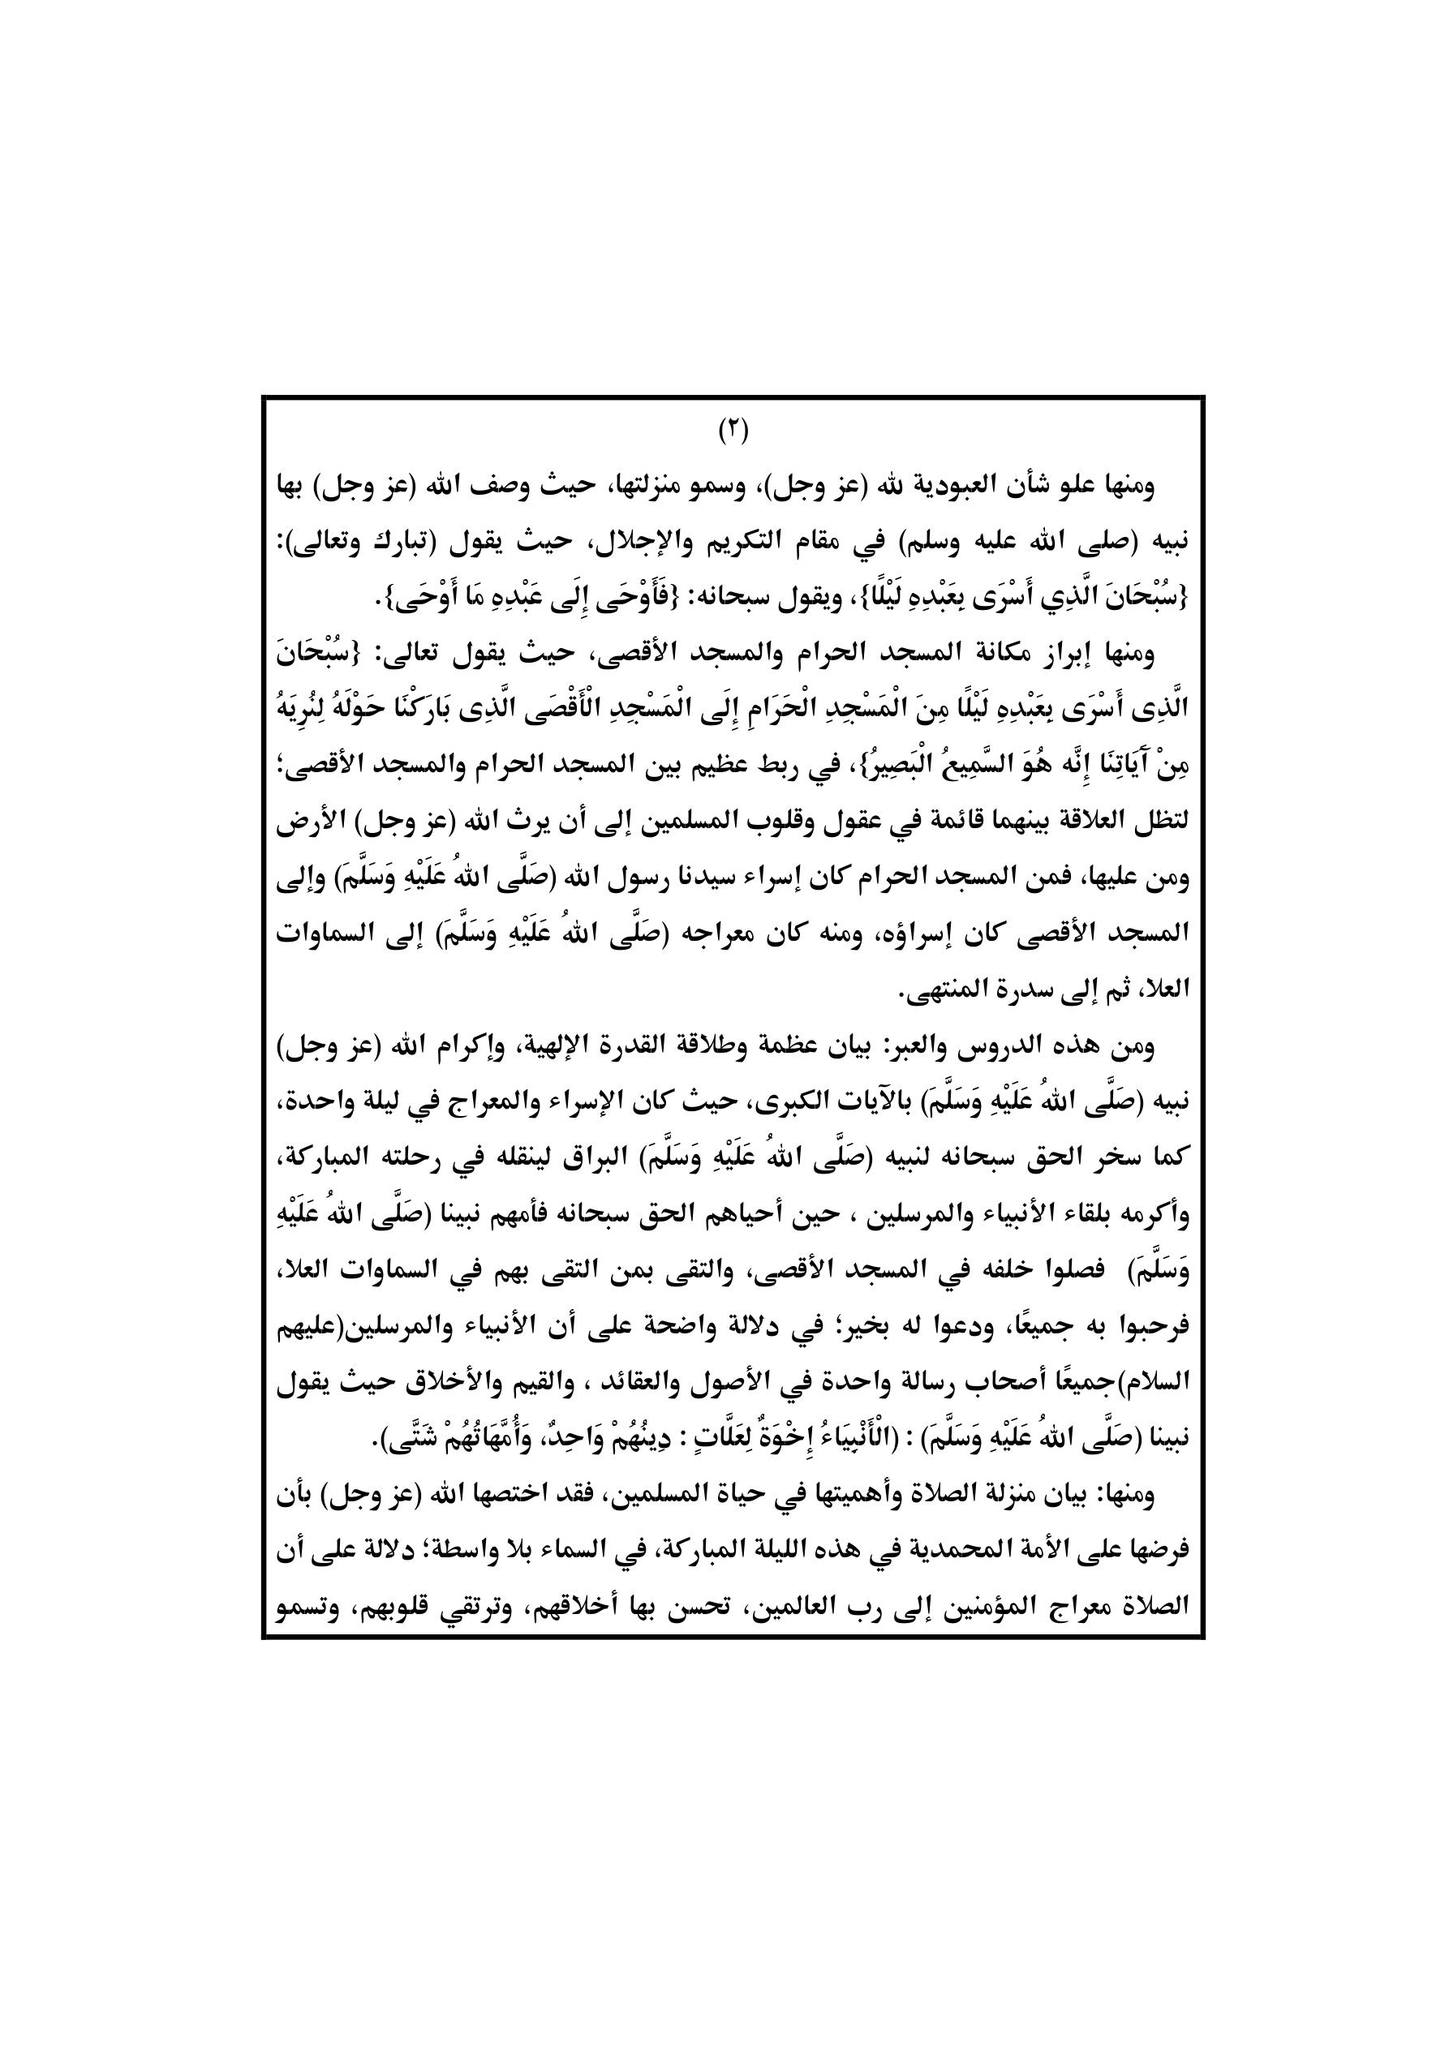 (٢)
ومنها علو شأن العبودية لله (عز وجل)، وسمو منزلتها، حيث وصف الله (عز وجل) بها
نبيه (صلى الله عليه وسلم) في مقام التكريم والإجلال، حيث يقول (تبارك وتعالى):
{سُبْحَانَ الَّذِي أَسْرَى بِعَبْدِهِ لَيْلًا}، ويقول سبحانه: {فَأَوْحَى إِلَى عَبْدِهِ مَا أَوْحَى}.
ومنها إبراز مكانة المسجد الحرام والمسجد الأقصى، حيث يقول تعالى: {سُبْحَانَ
الَّذِى أَسْرَى بِعَبْدِهِ لَيْلًا مِنَ الْمَسْجِدِ الْحَرَامِ إِلَى الْمَسْجِدِ الْأَقْصَى الَّذِى بَارَكْنَا حَوْلَهُ لِنُرِيَهُ
مِنْ آَيَاتِنَا إِنَّه هُوَ السَّمِيعُ الْبَصِيرُ}، في ربط عظيم بين المسجد الحرام والمسجد الأقصى؛
لتظل العلاقة بينهما قائمة في عقول وقلوب المسلمين إلى أن يرث الله (عز وجل) الأرض
ومن عليها، فمن المسجد الحرام كان إسراء سيدنا رسول الله (صَلَّى اللهُ عَلَيْهِ وَسَلَّمَ) وإلى
المسجد الأقصى كان إسراؤه، ومنه كان معراجه (صَلَّى اللهُ عَلَيْهِ وَسَلَّمَ) إلى السماوات
العلا، ثم إلى سدرة المنتهى.
ومن هذه الدروس والعبر: بيان عظمة وطلاقة القدرة الإلهية، وإكرام الله (عز وجل)
نبيه (صَلَّى اللهُ عَلَيْهِ وَسَلَّمَ) بالآيات الكبرى، حيث كان الإسراء والمعراج في ليلة واحدة،
كما سخر الحق سبحانه لنبيه (صَلَّى اللهُ عَلَيْهِ وَسَلَّمَ) البراق لينقله في رحلته المباركة،
وأكرمه بلقاء الأنبياء والمرسلين ، حين أحياهم الحق سبحانه فأمهم نبينا (صَلَّى اللهُ عَلَيْهِ
وَسَلَّمَ) فصلوا خلفه في المسجد الأقصى، والتقى بمن التقى بهم في السماوات العلا،
فرحبوا به جميعًا، ودعوا له بخير؛ في دلالة واضحة على أن الأنبياء والمرسلين(عليهم
السلام)جميعًا أصحاب رسالة واحدة في الأصول والعقائد ، والقيم والأخلاق حيث يقول
نبينا (صَلَّى اللهُ عَلَيْهِ وَسَلَّمَ) : (الْأَنْبِيَاءُ إِخْوَةٌ لِعَلَّاتٍ : دِينُهُمْ وَاحِدٌ، وَأُمَّهَاتُهُمْ شَتَّى).
ومنها: بيان منزلة الصلاة وأهميتها في حياة المسلمين، فقد اختصها الله (عز وجل) بأن
فرضها على الأمة المحمدية في هذه الليلة المباركة، في السماء بلا واسطة؛ دلالة على أن
الصلاة معراج المؤمنين إلى رب العالمين، تحسن بها أخلاقهم، وترتقي قلوبهم، وتسمو